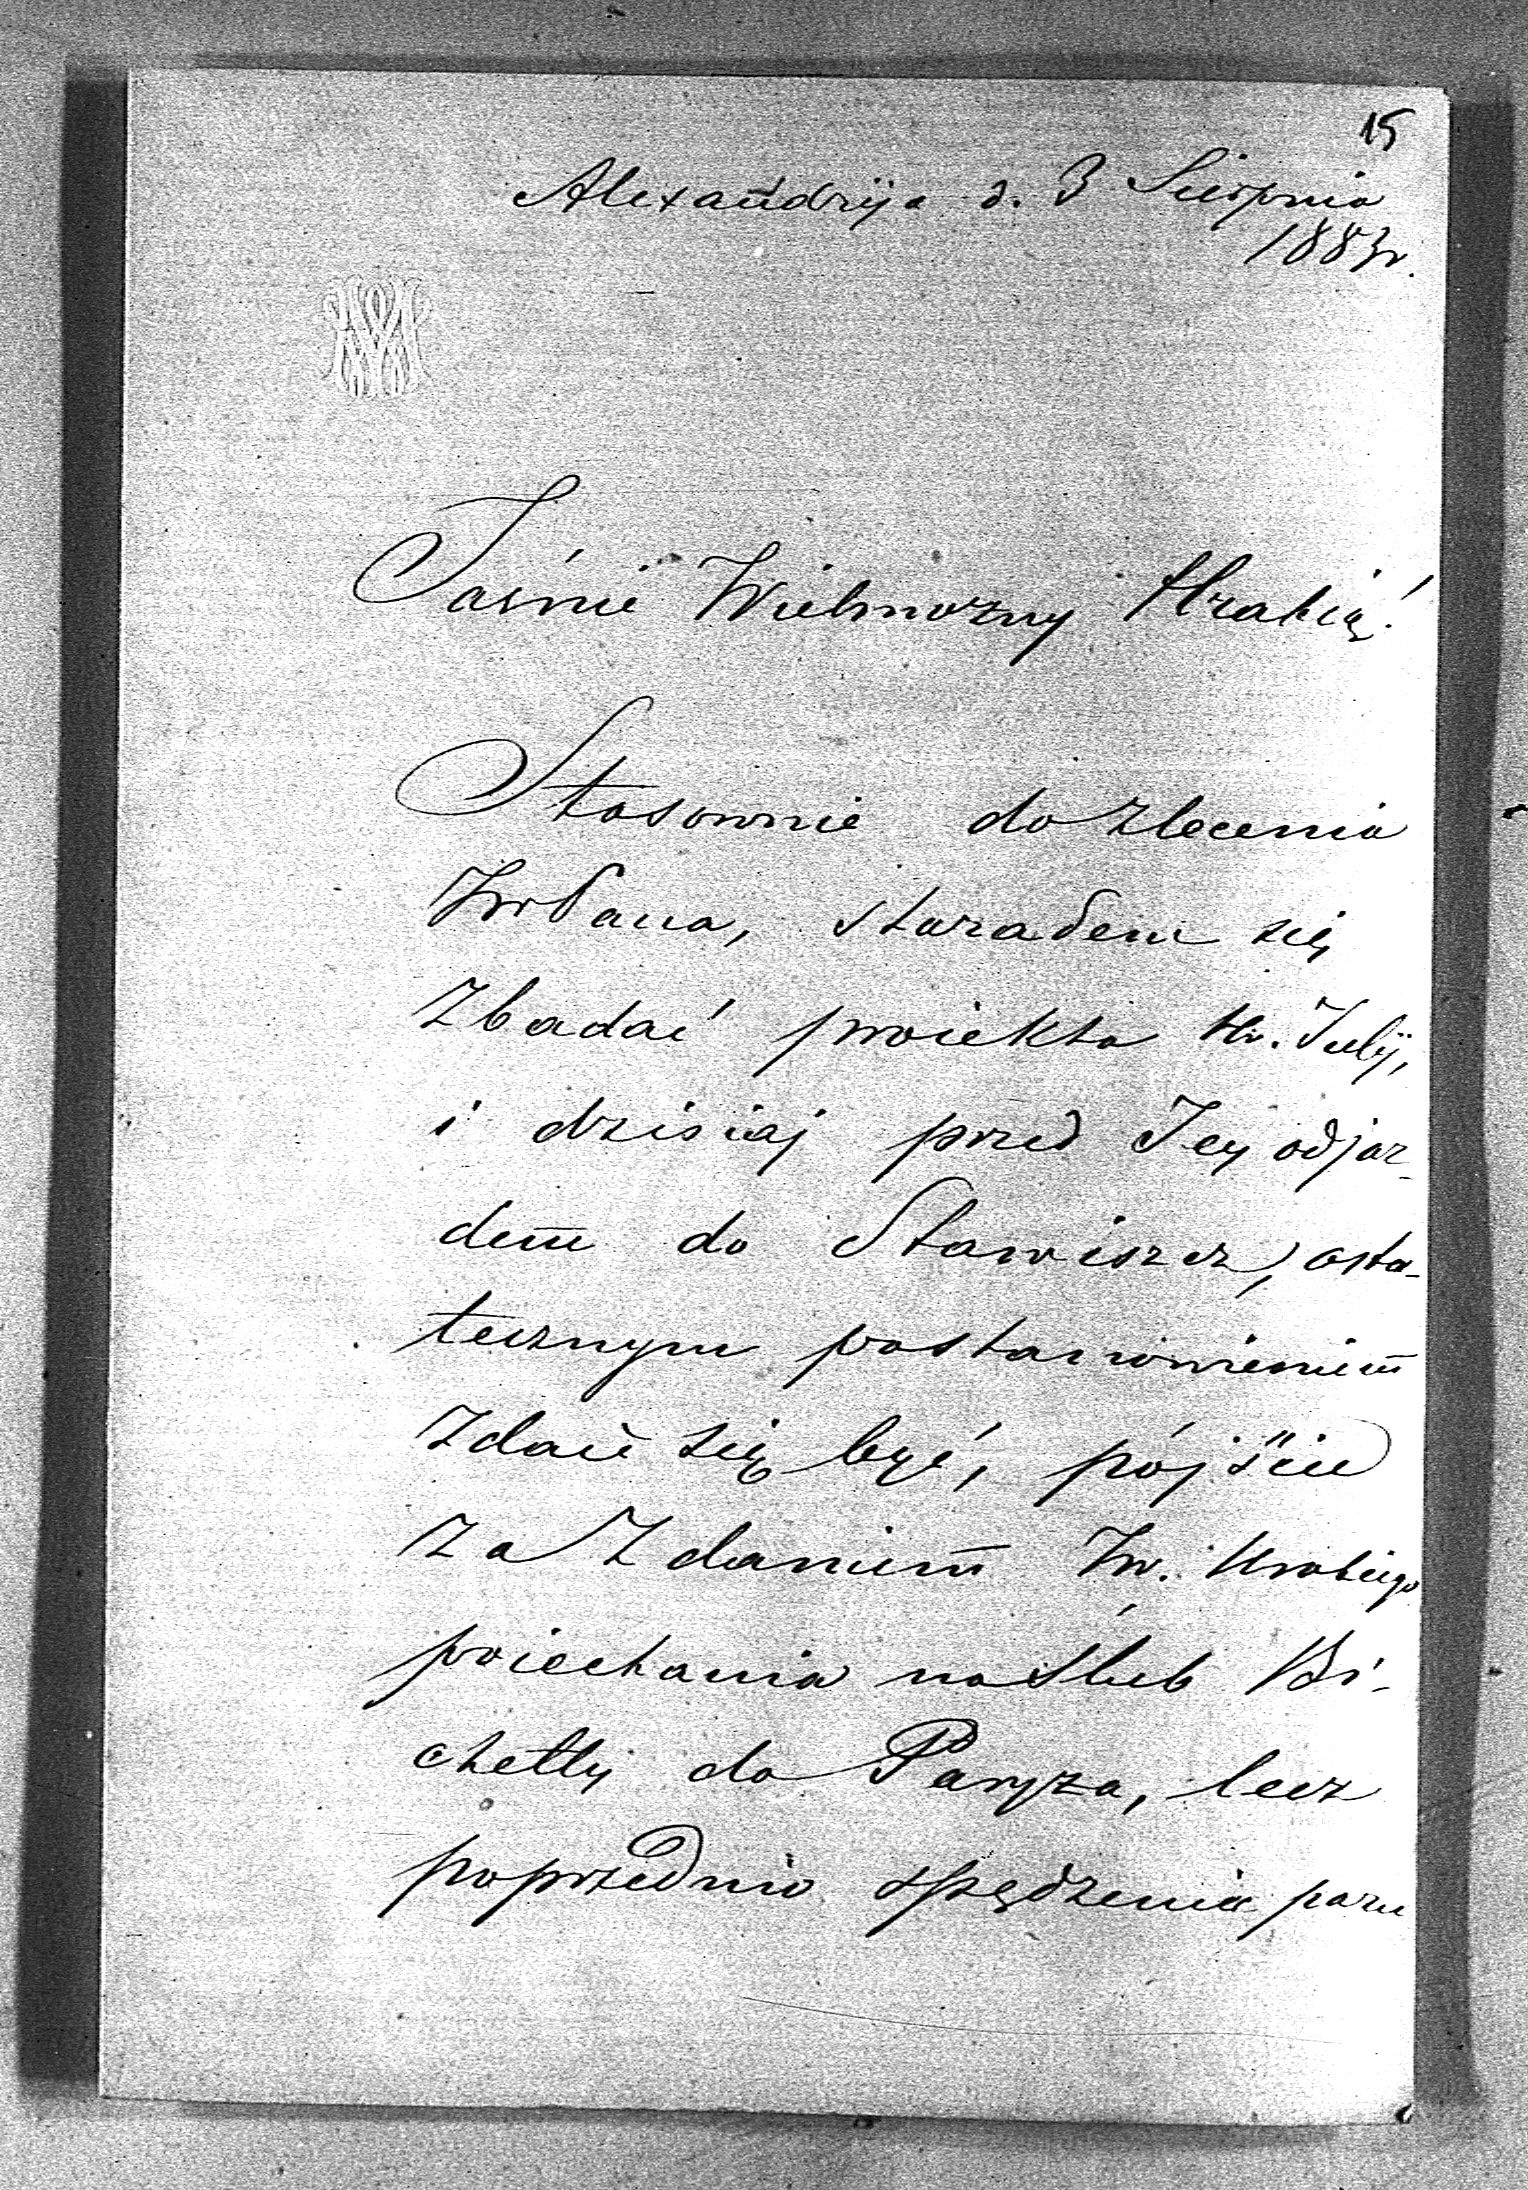 15
Alexandryja d. 3 Sierpnia
1883r.
Jaśnie Wielmożny Hrabio!
Stosownie do zlecenia
JWPana, starałem się
zbadać proiekta Hr. Julij,
i dzisiaj przed Jey odjaz-
dem do Stawiszcz, osta-
tecznym postanowieniem
zdaie się być, pójście
za zdaniem JW. Hrabiego
poiechania na ślub Bi-
chetty do Paryża, lecz
poprzednio spędzenia paru